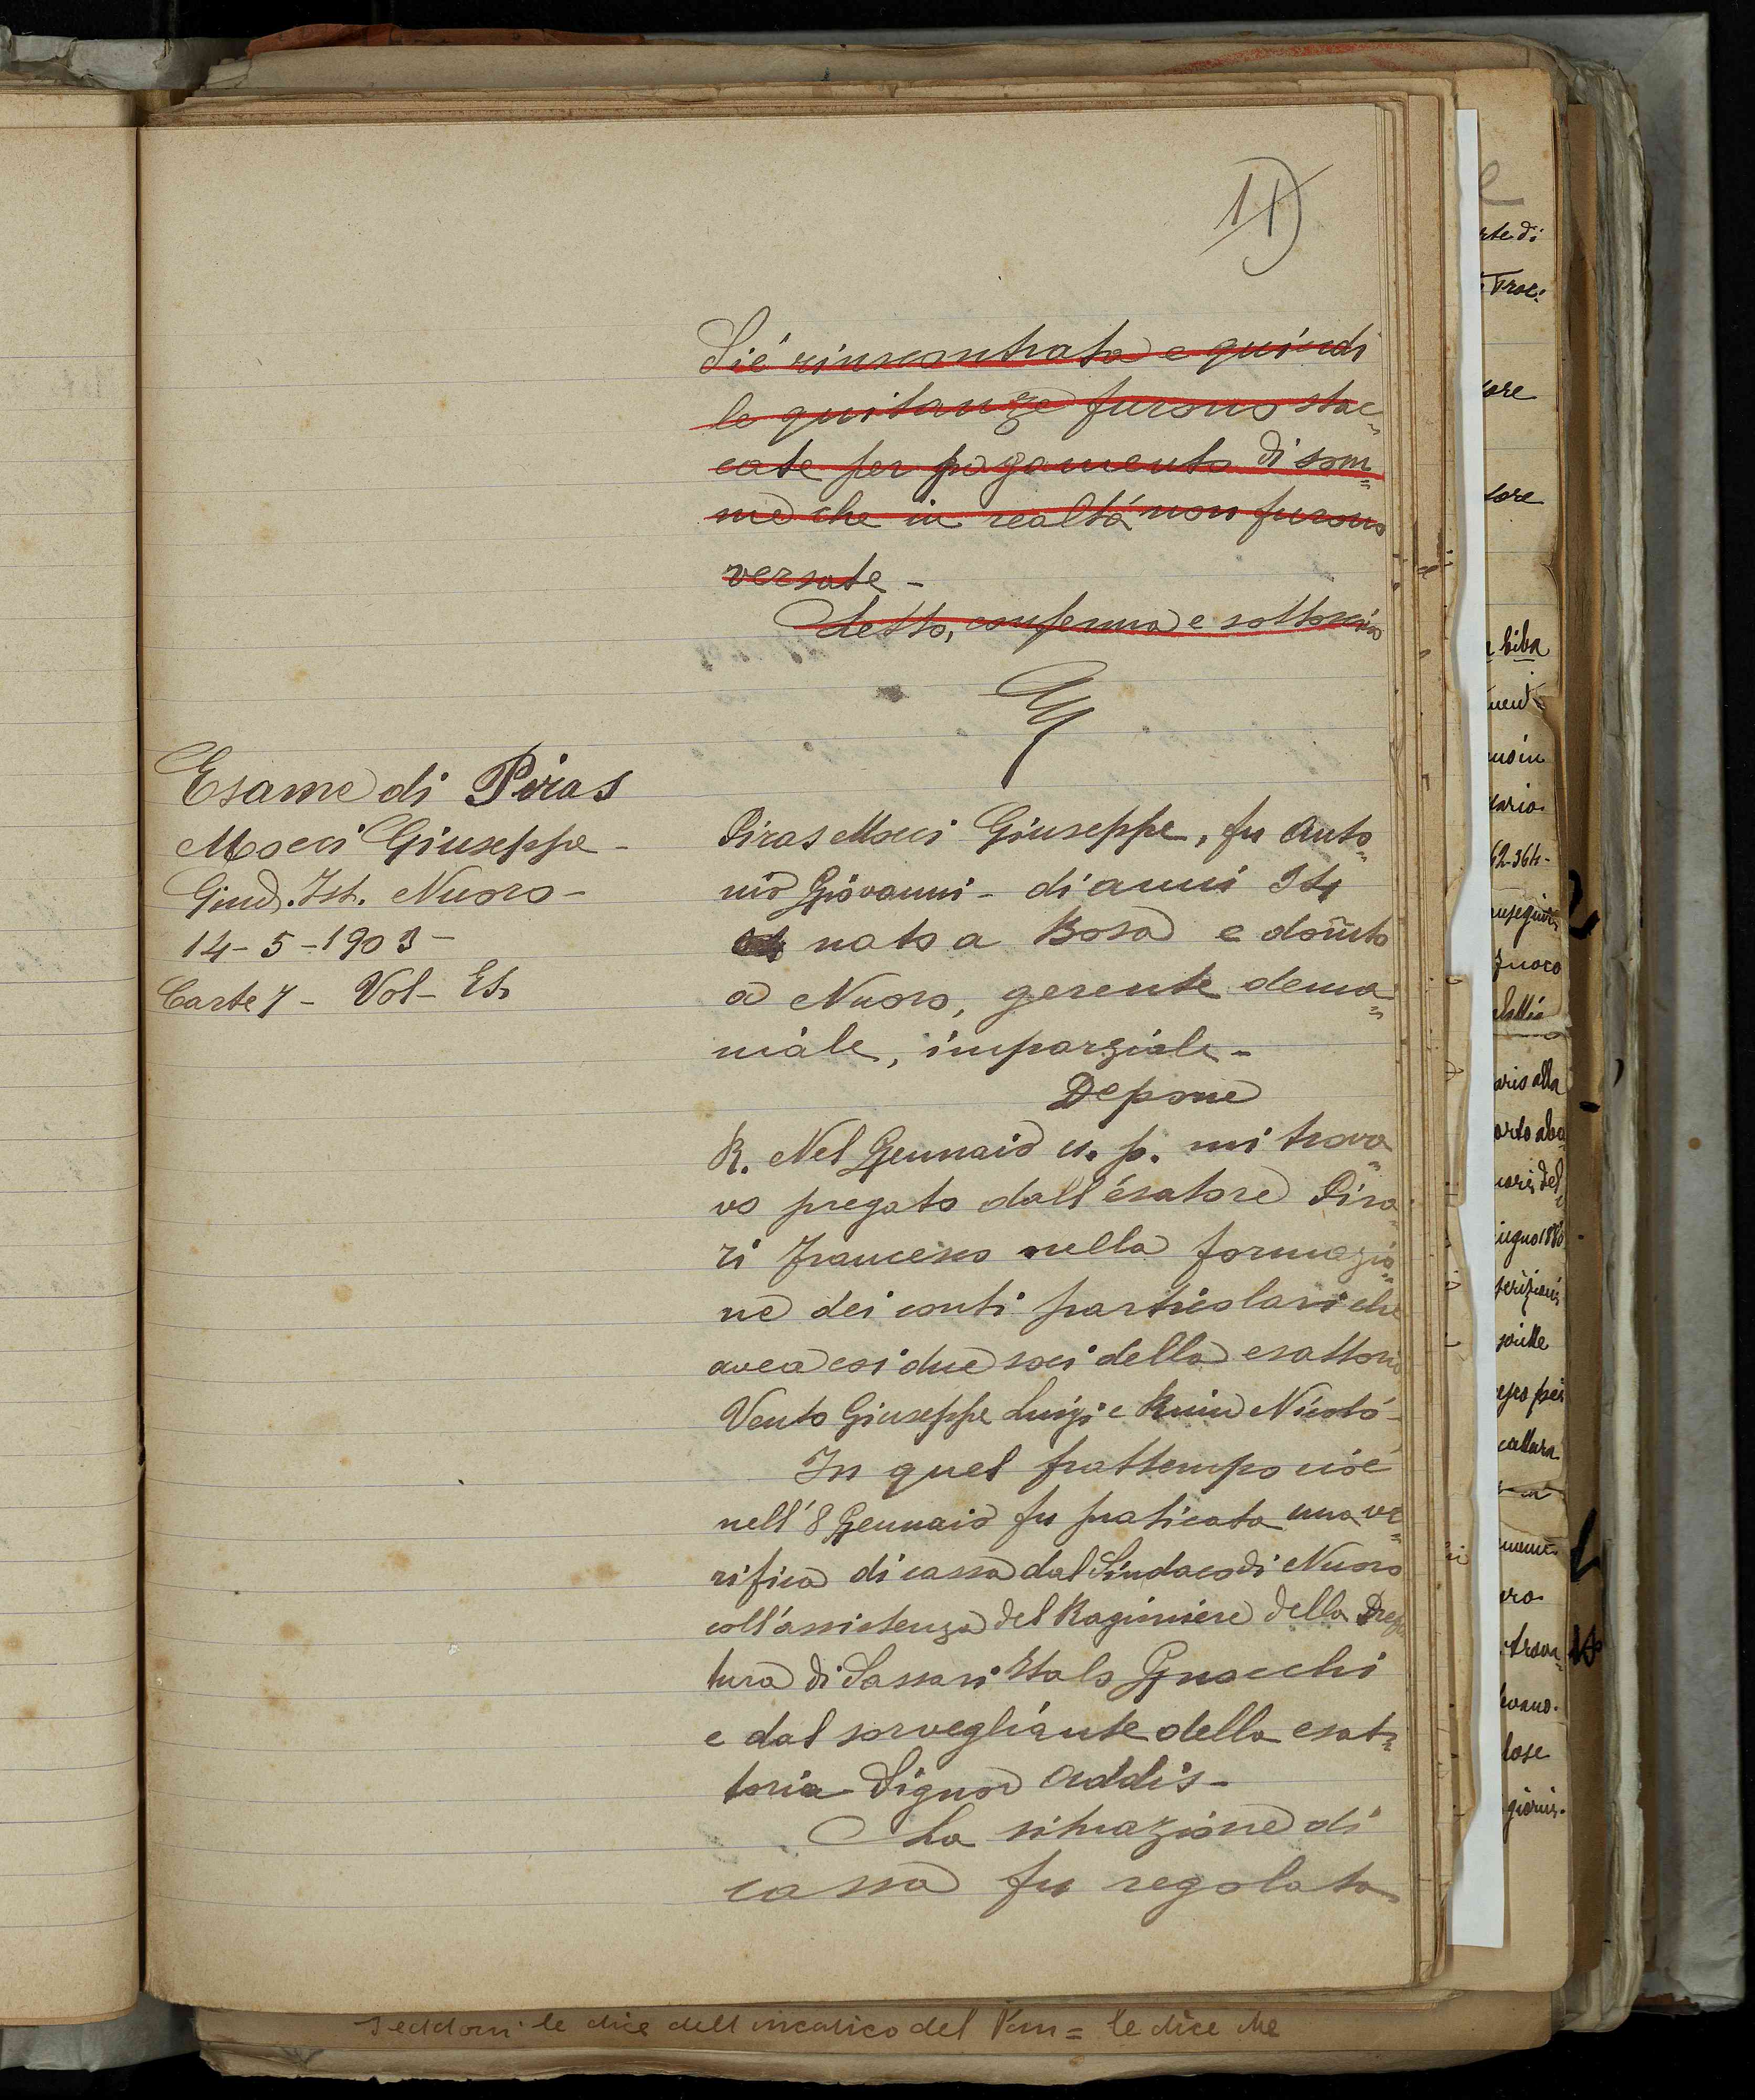 11)
Si è rinscontrata e quindi
le quitanze furono stac=
cate per pagamento di som=
me che in realtà non furono
versate -
Letto, conferma e sottoscrive
Esame di Piras
Mocci Giuseppe -
Giud. Ist. Nuoro -
14 - 5 - 1903 -
Carte 7 - Vol - Et.
Piras Mocci Giuseppe, fu Anto=
nio Giovanni - di anni 34
nato a Bosa e domto
a Nuoro, gerente dema=
niale, imparziale -
Depone
R. Nel Gennaio u. p. mi trova=
vo pregato dall'esatore Pira=
ri Francesco nella formazio=
ne dei conti particolari che
avea coi due soci della esattoria
Vento Giuseppe Luigi e Ruiu Nicolò -
In quel frattempo cioè
nell'8 Gennaio fu praticata una ve=
rifica di cassa dal Sindaco di Nuoro
coll'assistenza del Ragioniere della Prefe
tura di Sassari Italo Gnocchi
e dal sorvegliante della esat=
toria Signor Addis -
La situazione di
cassa fu regolata
le dice dell'incarico del = le dice che
rte di
tore
tore